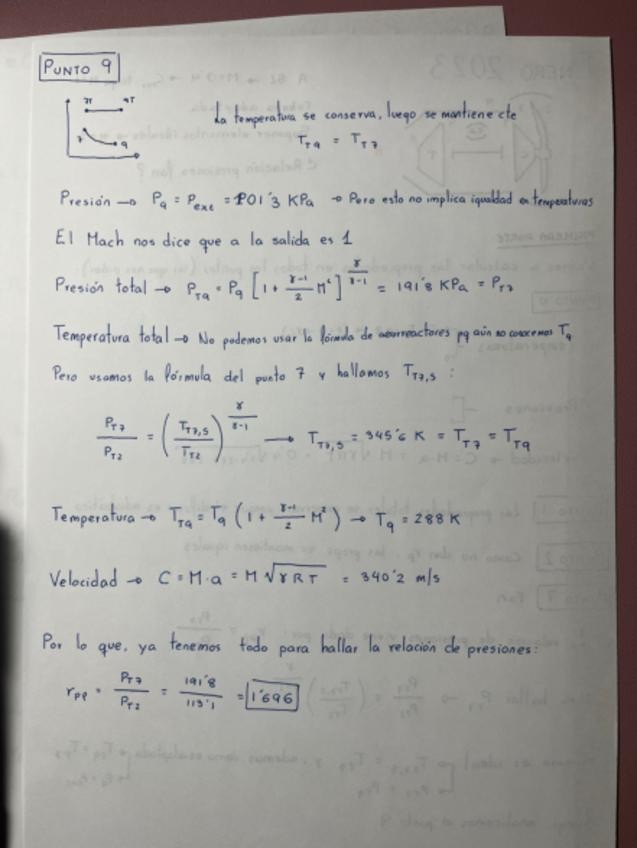 PUNTO 9
7T 9T
7 9
La temperatura se conserva, luego se mantiene cte
T_T9 = T_T7
Presión → P_9 = P_ext = 101'3 KPa → Pero esto no implica igualdad en temperaturas
El Mach nos dice que a la salida es 1
Presión total → P_T9 = P_9 [1 + (γ-1)/2 M²]^(γ/(γ-1)) = 191'8 KPa = P_T7
Temperatura total → No podemos usar la fórmula de aerorreactores pq aún no conocemos T_9
Pero usamos la fórmula del punto 7 y hallamos T_T7,s :
P_T7/P_T2 = (T_T7,s/T_T2)^(γ/(γ-1)) → T_T7,s = 345'6 K = T_T7 = T_T9
Temperatura → T_T9 = T_9 (1 + (γ-1)/2 M²) → T_9 = 288 K
Velocidad → C = M·a = M √γRT = 340'2 m/s
Por lo que, ya tenemos todo para hallar la relación de presiones:
r_pp = P_T7/P_T2 = 191'8/113'1 = 1'696